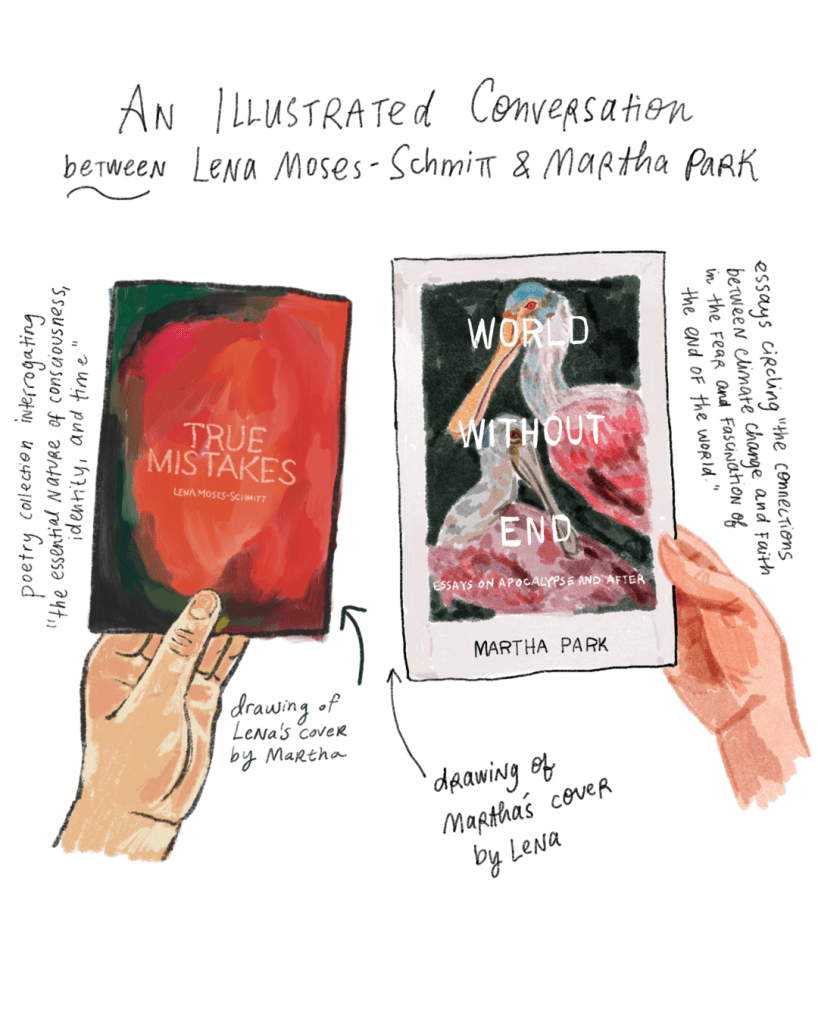 An Illustrated Conversation
between Lena Moses-Schmitt & Martha Park
poetry collection interrogating
"the essential nature of consciousness,
identity, and time"
TRUE
MISTAKES
LENA MOSES-SCHMITT
WORLD
WITHOUT
END
ESSAYS ON APOCALYPSE AND AFTER
MARTHA PARK
essays circling "the connections
between climate change and faith
in the fear and fascination of
the end of the world."
drawing of
Lena's cover
by Martha
drawing of
Martha's cover
by Lena